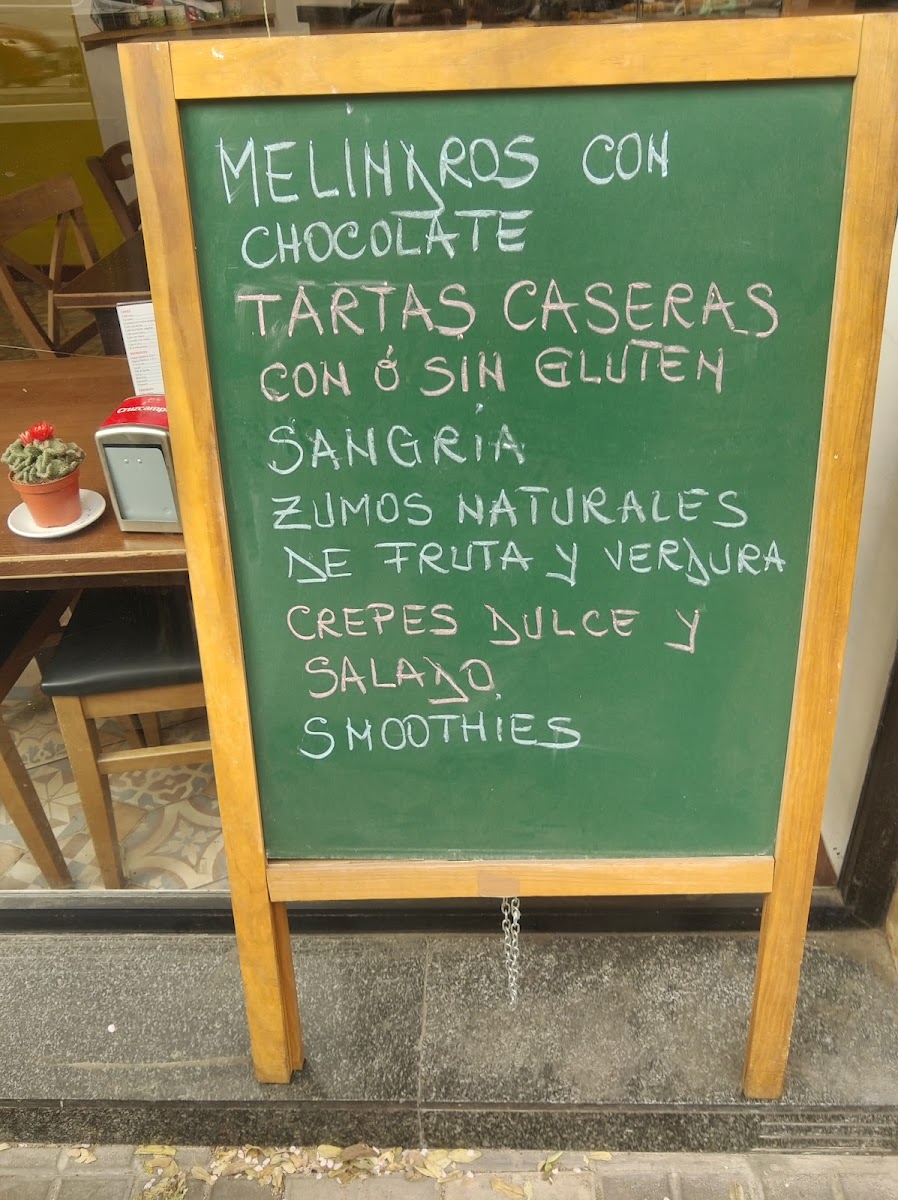 MELINDROS CON
CHOCOLATE
TARTAS CASERAS
CON Ó SIN GLUTEN
SANGRÍA
ZUMOS NATURALES
DE FRUTA Y VERDURA
CREPES DULCE Y
SALADO
SMOOTHIES
Cruzcampo